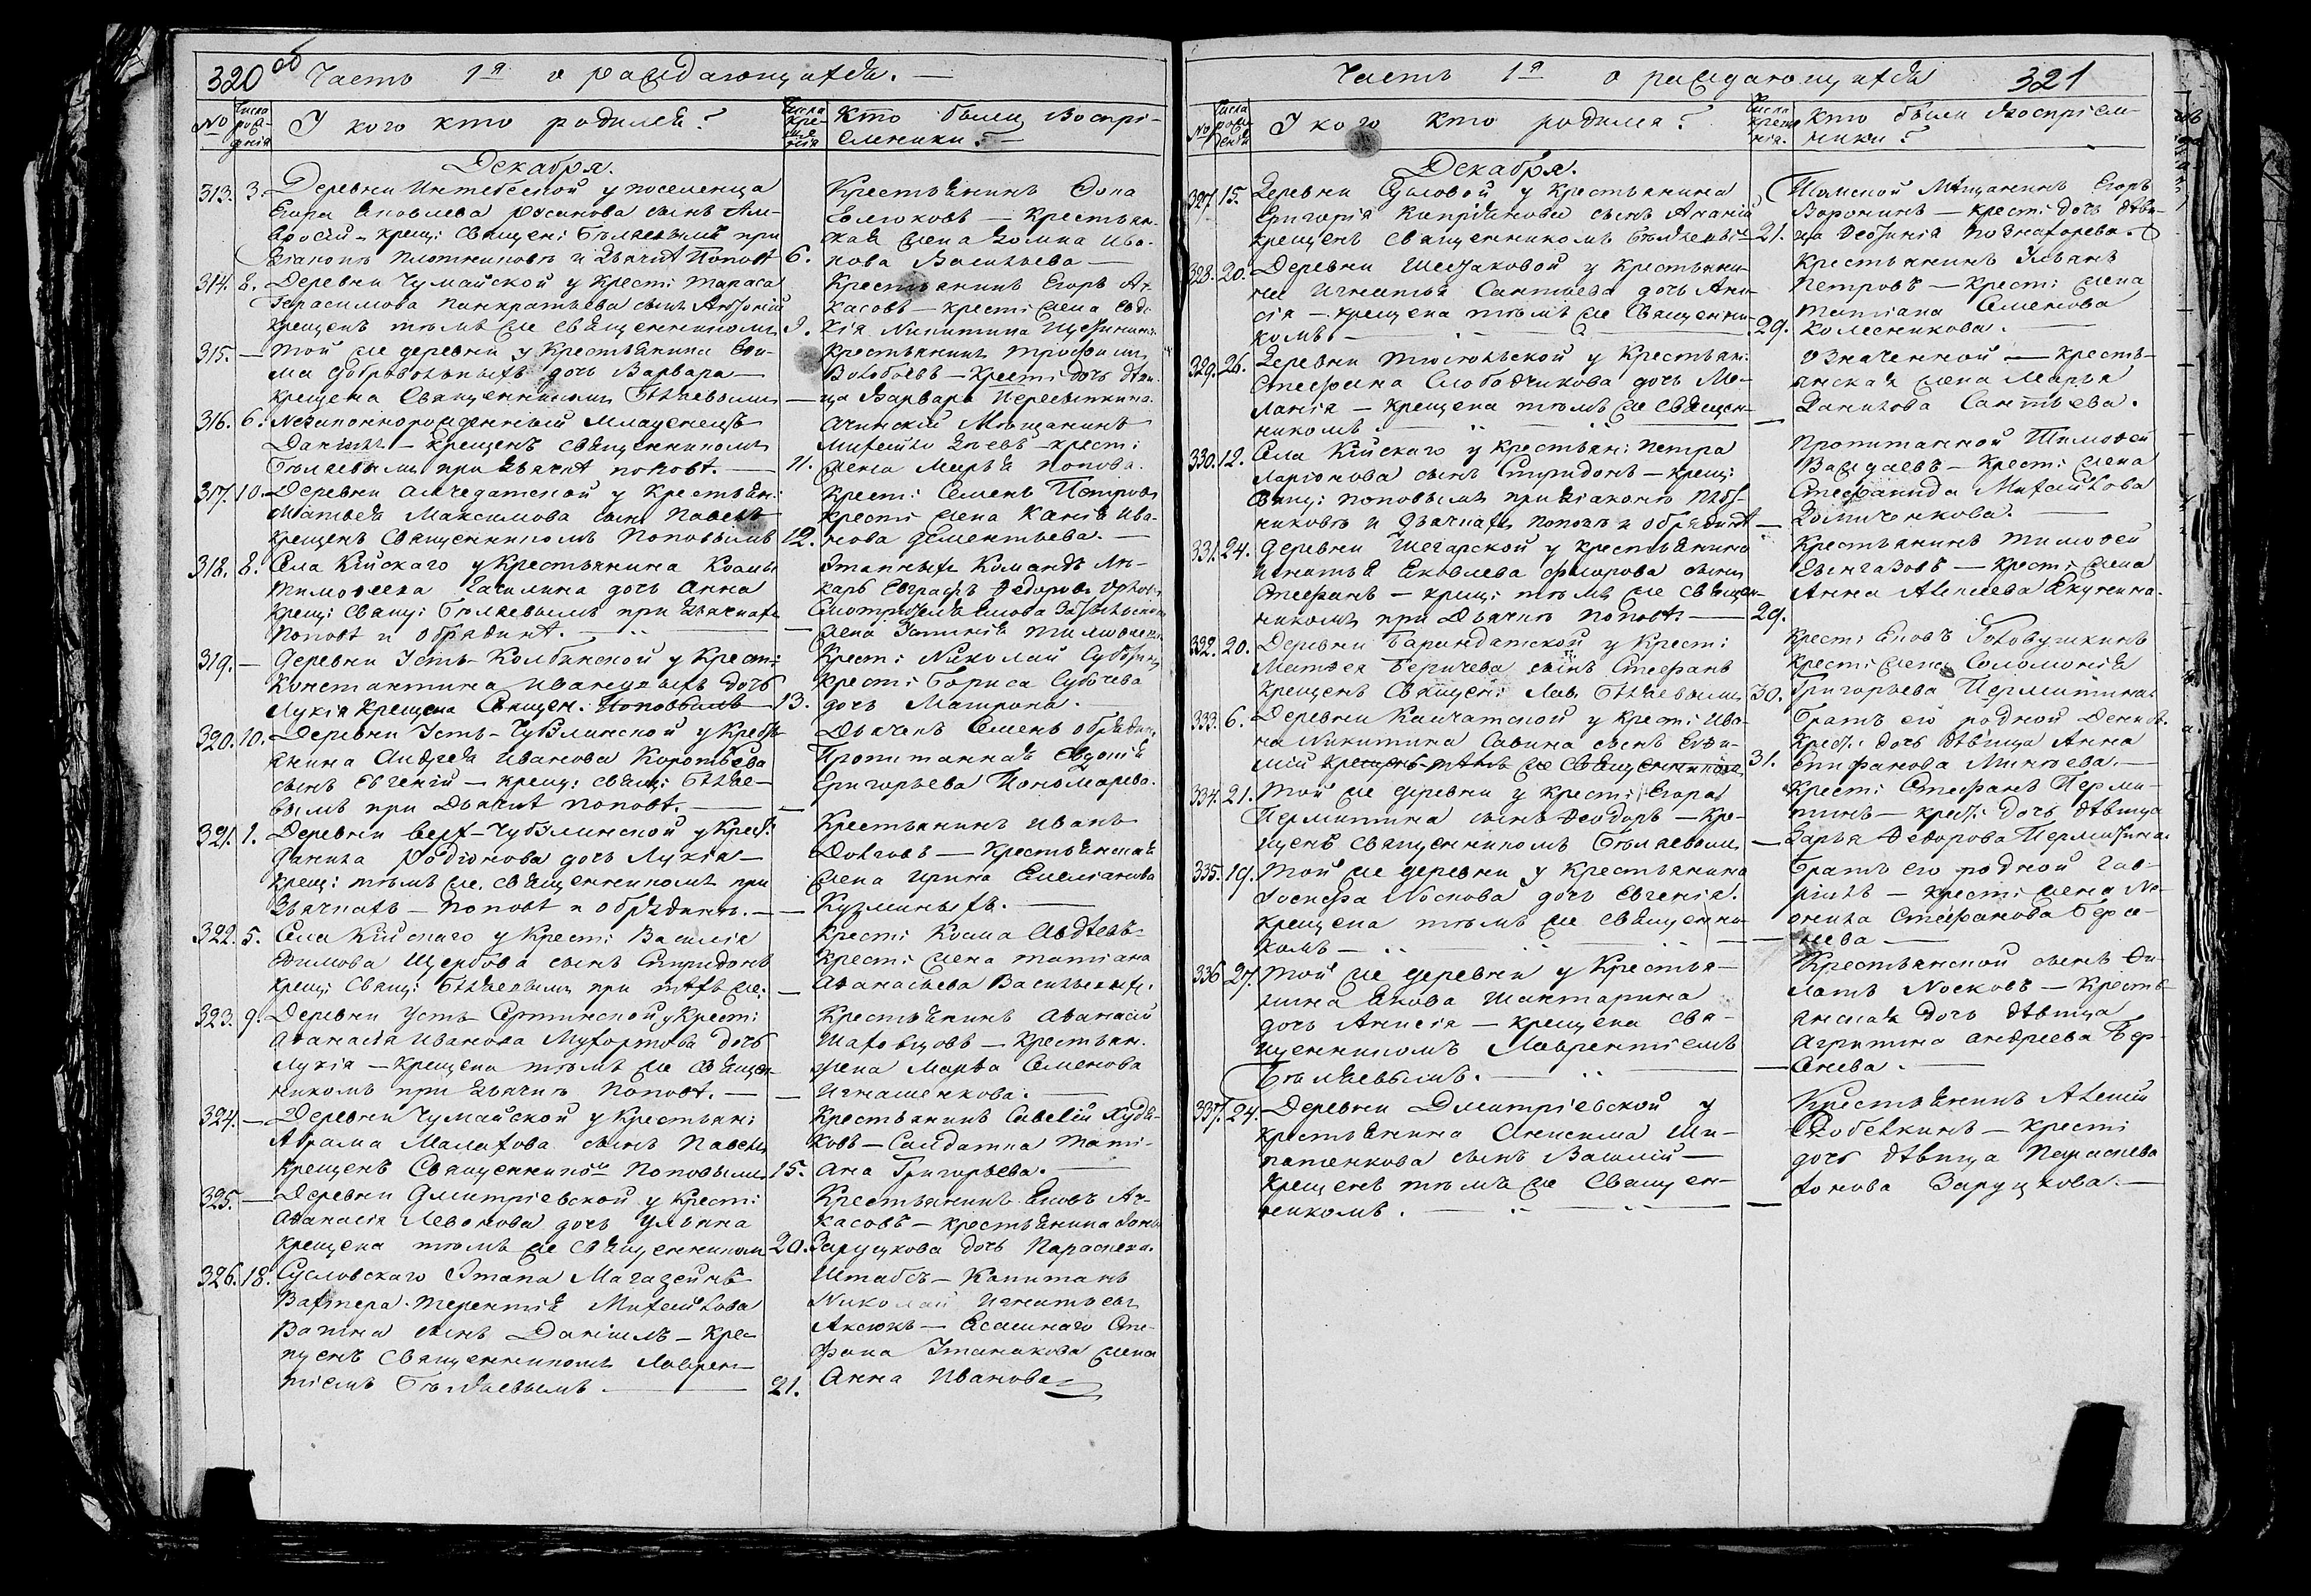 320 об Часть 1я о раждающихся. —
№
Числа рождения
У кого кто родился?
Числа крещения
Кто были Воспріемники. —
Декабря.
313. 3. Деревни Интебеской у поселенца
Егора Яковлева сынъ Ам-
вросій – крещ: Священ: Бѣляевымъ при
Діаконѣ Плотниковѣ и Дьячкѣ Поповѣ 6.
Крестьянинъ Ѳома
— Крестьян-
ская жена Домна Ива-
нова Васильева —
314. 8. Деревни Чумайской у Крест: Тараса
Герасимова Панкратьева сынъ Антоній
крещенъ тѣмъ же священникомъ 9.
Крестьянинъ Егоръ Ар-
касовъ – крест: жена Евдо-
кія Никитина
315. — Той же деревни у Крестьянина
Добровольныхъ дочь Варвара —
крещена Священникомъ Бѣляевымъ —
Крестьянинъ Трофимъ
Воробьевъ – Крест: дочь дѣви-
ца Варвара Пересыпкина.
316. 6. Незаконнорожденный младенецъ
Даніилъ – крещенъ священникомъ
Бѣляевымъ при дьячкѣ Поповѣ. — 11.
Ачинскій Мѣщанинъ
Михайло – крест:
жена Марья Попова.
317. 10. Деревни Амчедатской у Крестьян:
Матвея Максимова сынъ Павелъ
крещенъ Священникомъ Поповымъ 12.
Крест: Семенъ Петровъ
крест: жена Ива-
нова Дементьева. —
318. 8. Села Кійскаго у Крестьянина Козмы
Тимоѳеева дочь Анна
крещ: свящ: Бѣляевымъ при дьячкахъ
Поповѣ и Обрядинѣ. — —
Этапныхъ Командъ Лѣ-
карь Евграфъ Ѳедоровъ
жена
319. — Деревни Усть-Колбинской у Крест:
Константина Иванцовыхъ дочь
Лукія крещена Священ. Поповымъ 13.
Крест: Николай
Крест: Бориса
дочь Матрона.
320. 10. Деревни Усть-Чубулинской у Кресть-
янина Андрея Иванова Коротаева
сынъ Евгеній – крещ: свящ: Бѣляе-
вымъ при Дьячкѣ Поповѣ. — —
Дьячекъ Семенъ Обрядинъ
Пропитанная
Григорьева Пономарева.
321. 1. Деревни Верх-Чубулинской у Крест:
Данила Родіонова дочь Лукія —
крещ: тѣмъ же священникомъ при
Дьячкахъ – Поповѣ и Обрядинѣ. — —
Крестьянинъ Иванъ
Долговъ — Крестьянская
жена Ирина Емеліанова
Кузминыхъ. —
322. 5. Села Кійскаго у Крест: Василія
Щербова сынъ Спиридонъ
крещ: Свящ: Бѣляевымъ при тѣхъ же. —
Крест: Козма Авдѣевъ
Крест: жена Татіана
Аѳанасьева Васильевыхъ.
323. 9. Деревни Усть-Сертинской у Крест:
Аѳанасія Иванова Мухортова дочь
Лукія – крещена тѣмъ же священ-
никомъ при дьячкѣ Поповѣ. — —
Крестьянинъ Аѳанасій
Шаховцовъ – Крестьян.
жена Марѳа Семенова
Игнашенкова. —
324. — Деревни Чумайской у Крестьян:
Абрама Малахова сынъ Павелъ
крещенъ Священникомъ Поповымъ 15.
Крестьянинъ Савелій Худя-
ковъ – Солдатка Тати-
ана Григорьева. —
325. — Деревни Дмитріевской у Крест:
Аѳанасія Левонова дочь Ульяна
крещена тѣмъ же священникомъ 20.
Крестьянинъ Яковъ Ар-
касовъ – крестьянина
Заруцкова дочь Параскева.
326. 18. Сусловскаго Этапа Магазейнъ
Вахтера Терентія Михайлова
Вагина сынъ Даніилъ – кре-
щенъ Священникомъ Лаврен-
тіемъ Бѣляевымъ. — 21.
Штабсъ – Капитанъ
Николай Игнатьевъ
Аксюкъ — Сте-
фана жена
Анна Иванова
Часть 1я о раждающихся 321
№
Числа рожденій
У кого кто родился?
Числа крещенія.
Кто были Воспріем-
ники?
Декабря.
327. 15. Деревни Сусловой у Крестьянина
Григорія Капріянова сынъ Ананій
крещенъ священникомъ Бѣляевымъ 21.
Томской Мѣщанинъ Егоръ
Воронинъ – крест: дочь дѣви-
ца Ѳеофанія Пономарева.
328. 20. Деревни Шестаковой у Крестьяни-
на Игнатья Сантьева дочь Ани-
сія – крещена тѣмъ же Священни-
комъ. — 29.
Крестьянинъ Ульянъ
Петровъ – Крест: жена
Татіана Семенова
Колесникова. —
329. 26. Деревни Тюменьской у Крестьян:
Стефана Слободчикова дочь Ме-
ланія – крещена тѣмъ же священ-
никомъ. —
означенной — кресть-
янская жена Марья
Данилова Сантьева.
330. 12. Села Кійскаго у крестьян: Петра
Ларіонова сынъ Спиридонъ – крещ:
Свящ: Поповымъ при діаконѣ Плот-
никовѣ и Дьячкахъ Поповѣ и Обрядинѣ —
Пропитанной Тимоѳей
– Крест: жена
Стефанида Михайлова
Домиченкова. —
331. 24. Деревни Шегарской у крестьянина
Игнатья Яковлева Флорова сынъ
Стефанъ – крещ: тѣмъ же священ-
никомъ при Дьячкѣ Поповѣ. — 29.
Крестьянинъ Тимоѳей
– Крест: жена
Анна Алексеева Якунина.
332. 20. Деревни Барандатской у Крест:
Матвея Беричева сынъ Стефанъ
крещенъ Священ: Лав. Бѣляевымъ 30.
Крест: Яковъ Головушкинъ
крест: жена Соломонія
Григорьева Пермитина
333. 6. Деревни Камчатской у Крест: Ива-
на Никитина Савина сынъ Евѳи-
мій крещенъ тѣмъ же священникомъ 31.
Братъ его родной
Крест: дочь дѣвица Анна
Епифанова Минеева. —
334. 21. Той же деревни у крест: Егора
Пермитина сынъ Ѳеодоръ – Кре-
щенъ священникомъ Бѣляевымъ —
Крест: Стефанъ Перми-
тинъ – крест: дочь дѣвица
Дарья Ѳедорова Пермитина
335. 19. Той же деревни у Крестьянина
Іосифа Носкова дочь Евгенія.
крещена тѣмъ же священни-
комъ — —
Братъ его родной Гав-
ріилъ – крест: жена Ма-
Стефанова Берсе-
нева —
336 27. Той же деревни у Крестья-
нина Якова Шахтарина
дочь Анисія – крещена Свя-
щенникомъ Лаврентіемъ
Бѣляевымъ. — —
Крестьянской сынъ Фи-
латъ Носковъ – Кресть-
янская дочь дѣвица
Агрипина Андреева Бер-
сенева. —
337. 24. Деревни Дмитріевской у
Крестьянина Онисима Ши-
патенкова сынъ Василій —
Крещенъ тѣмъ же Священ-
никомъ. — —
Крестьянинъ Алексій
Скобелкинъ – крест:
дочь дѣвица Параскева
Заруцкова. —